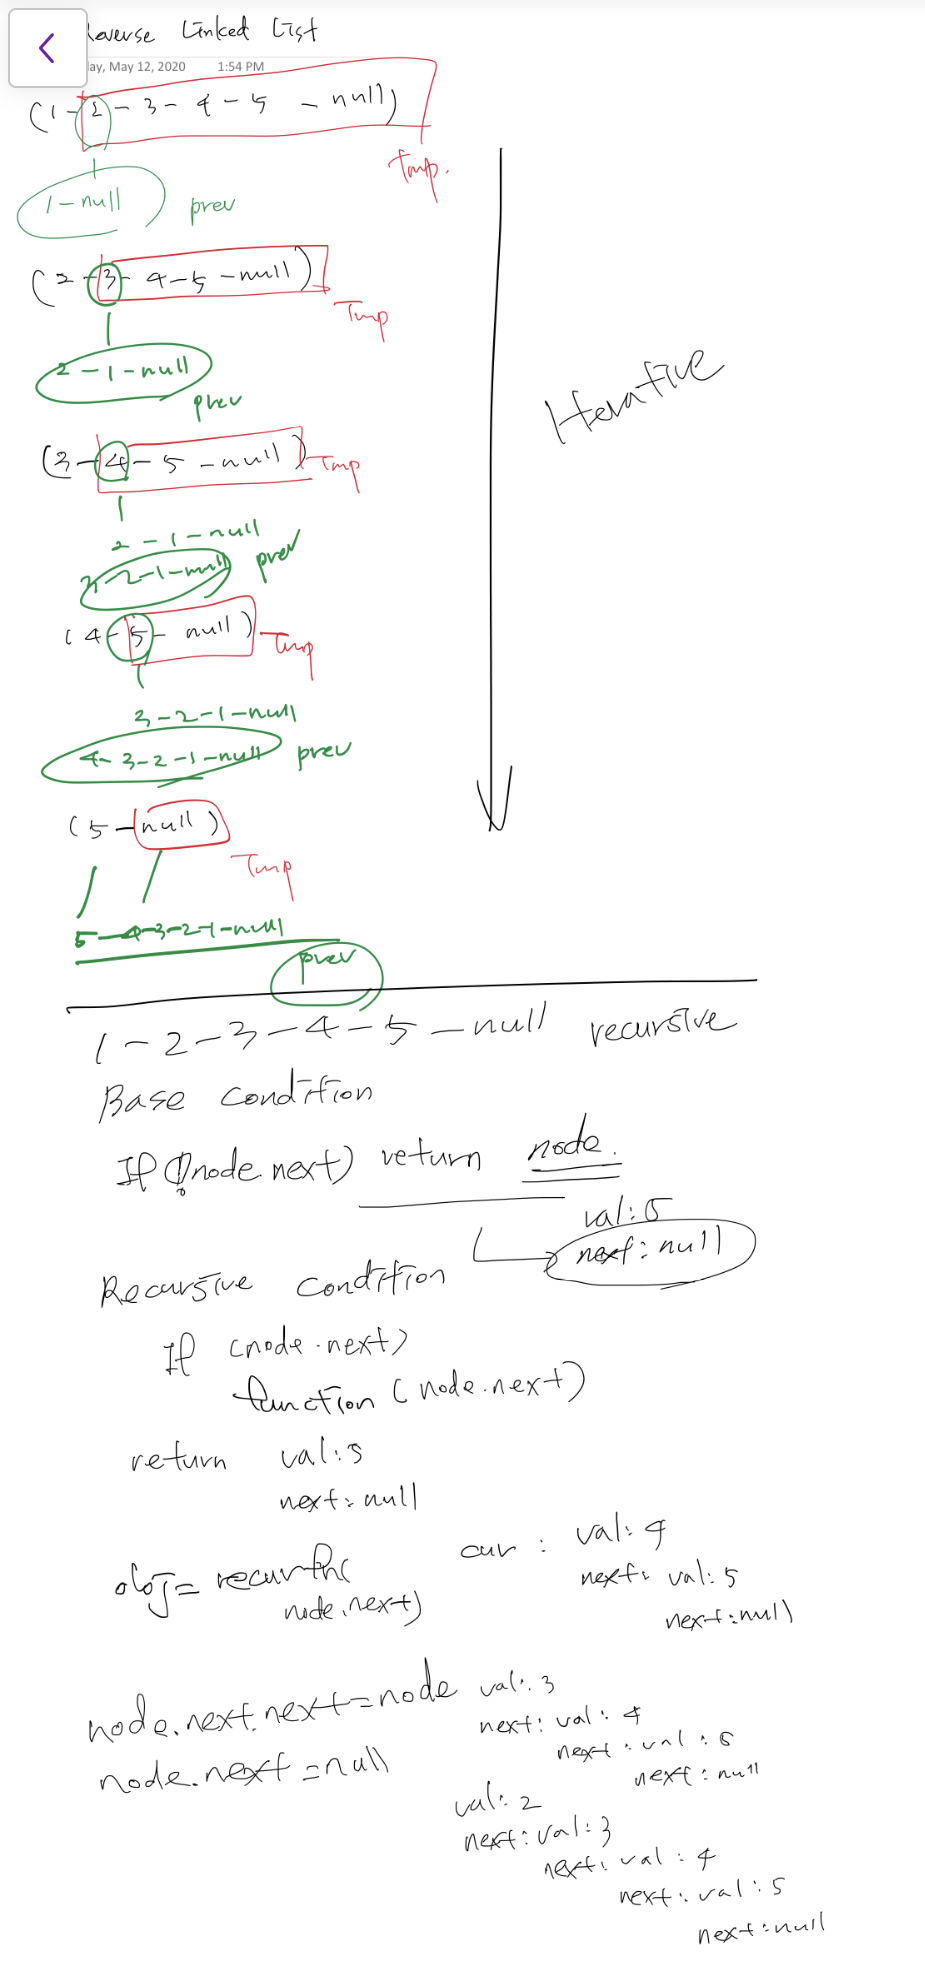 Reverse Linked List
ay, May 12, 2020 1:54 PM
(1-2-3-4-5-null)
Tmp.
1-null prev
(2-3-4-5-null)
Tmp
2-1-null
prev
(3-4-5-null) Tmp
2-1-null
3-2-1-null prev
(4-5-null) Tmp
3-2-1-null
4-3-2-1-null prev
(5-null)
Tmp
5-4-3-2-1-null
prev
Iterative
1-2-3-4-5-null recursive
Base condition
If (!node.next) return node.
val:5
next:null
Recursive condition
If (node.next)
function (node.next)
return val:5
next:null
obj= recurth(
node.next)
cur : val:4
next: val:5
next:null
node.next.next=node
node.next=null
val:3
next: val:4
next:val:5
next:null
val:2
next:val:3
next:val:4
next:val:5
next:null